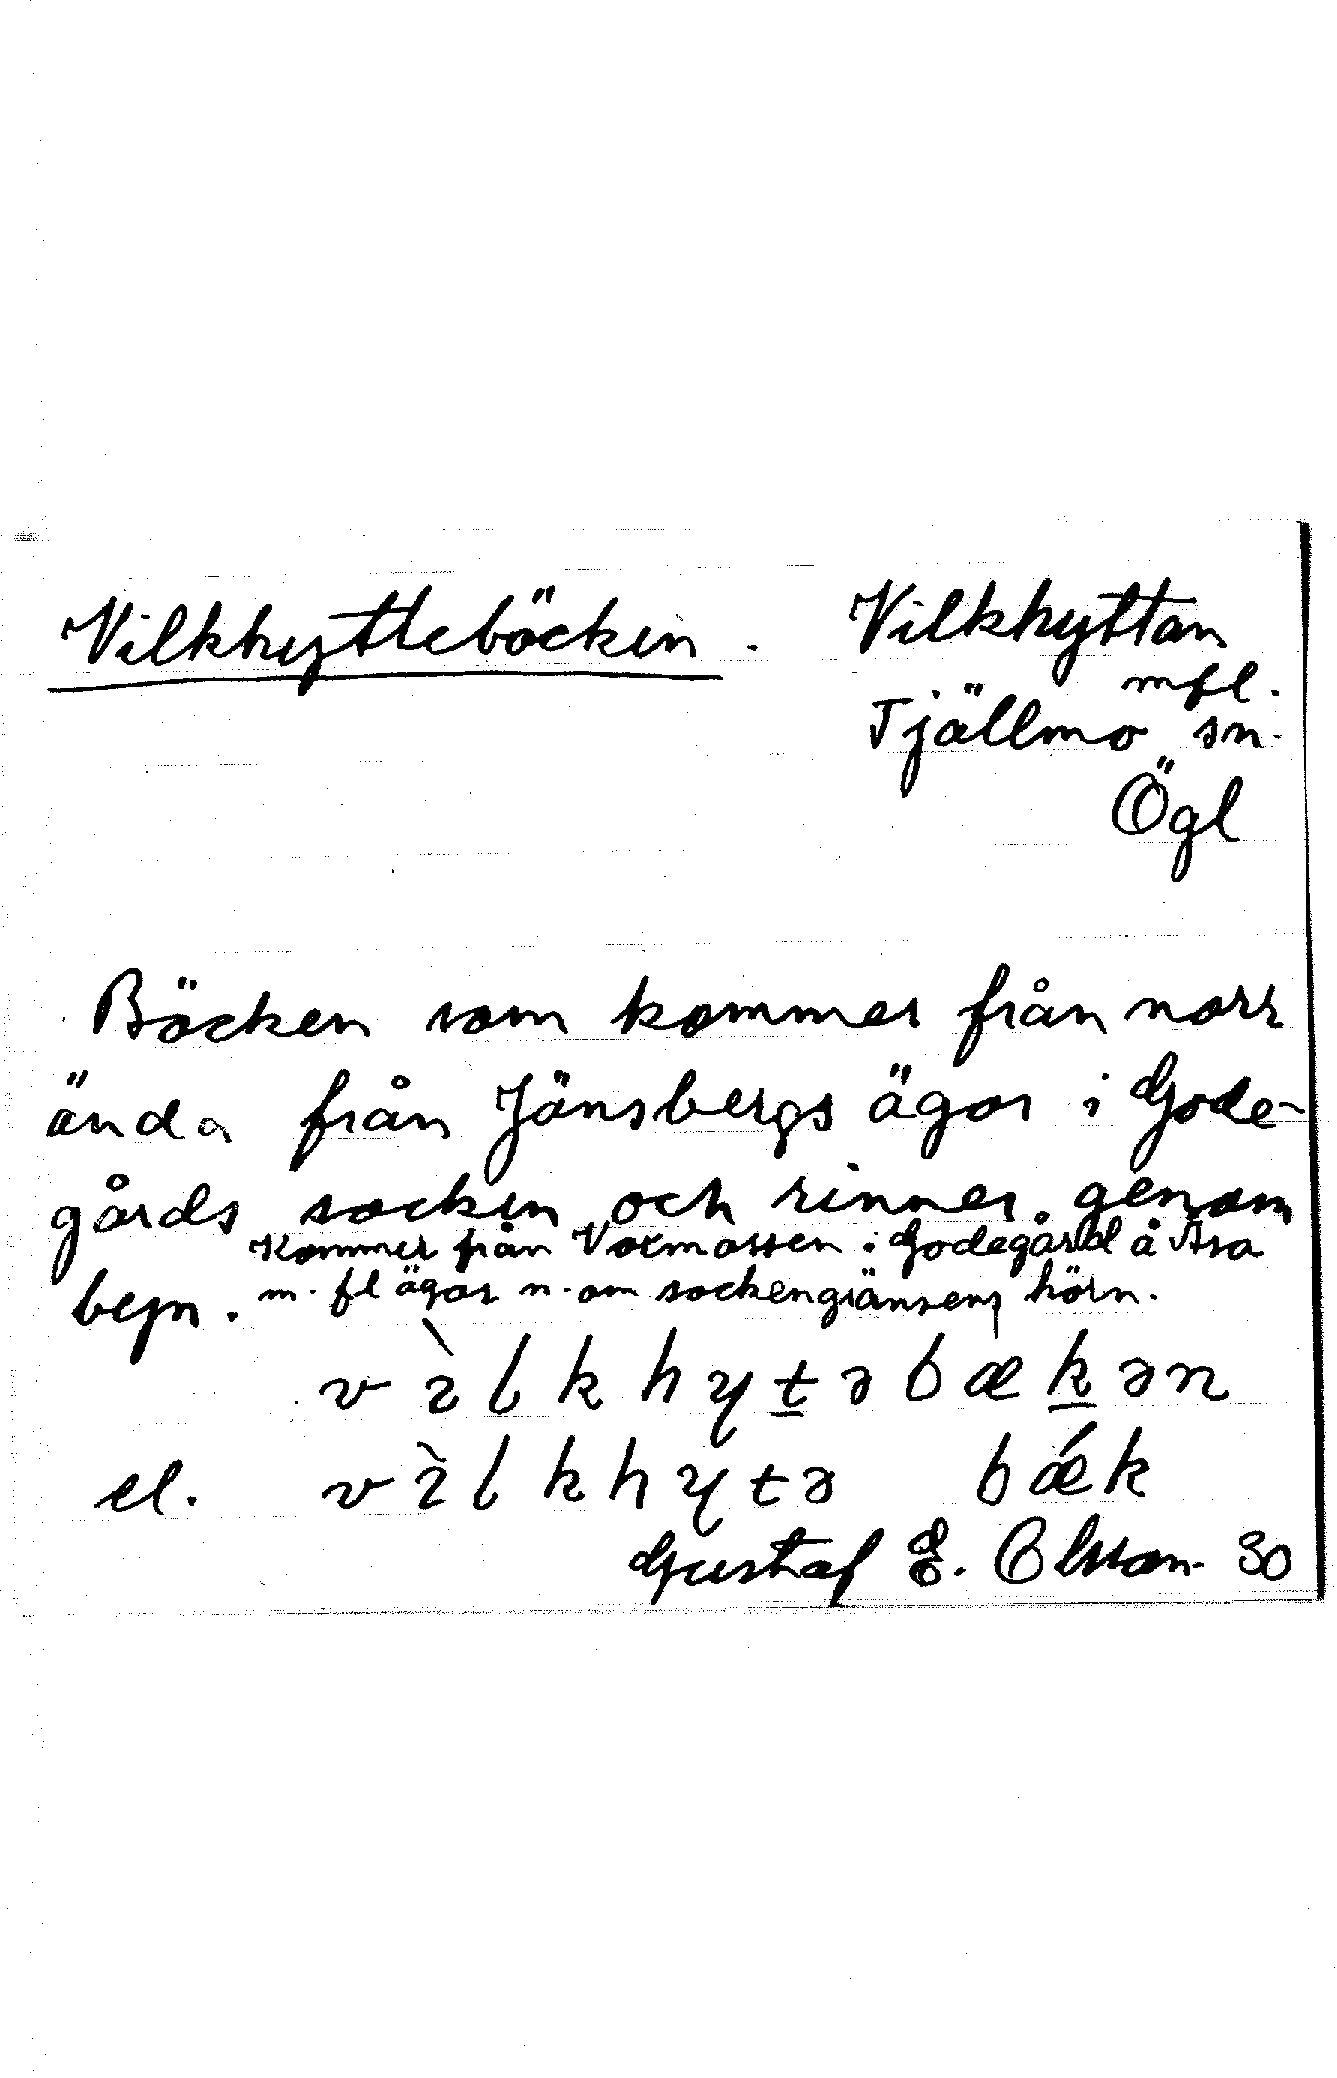 Vilkhyttebäcken. Vilkhyttan
m fl.
Tjällmo sn.
Ögl
Bäcken som kommer från norr
ända från Jänsbergs ägor i Gode-
gårds socken och rinner genom
Kommer från Vormossen i Godegård å Asa
begn. m. fl ägor n. om sockengränsens hörn.
vìlkhyṯəbæḵən
el. vìlkhytə bǽk
Gustaf E. Olsson 30